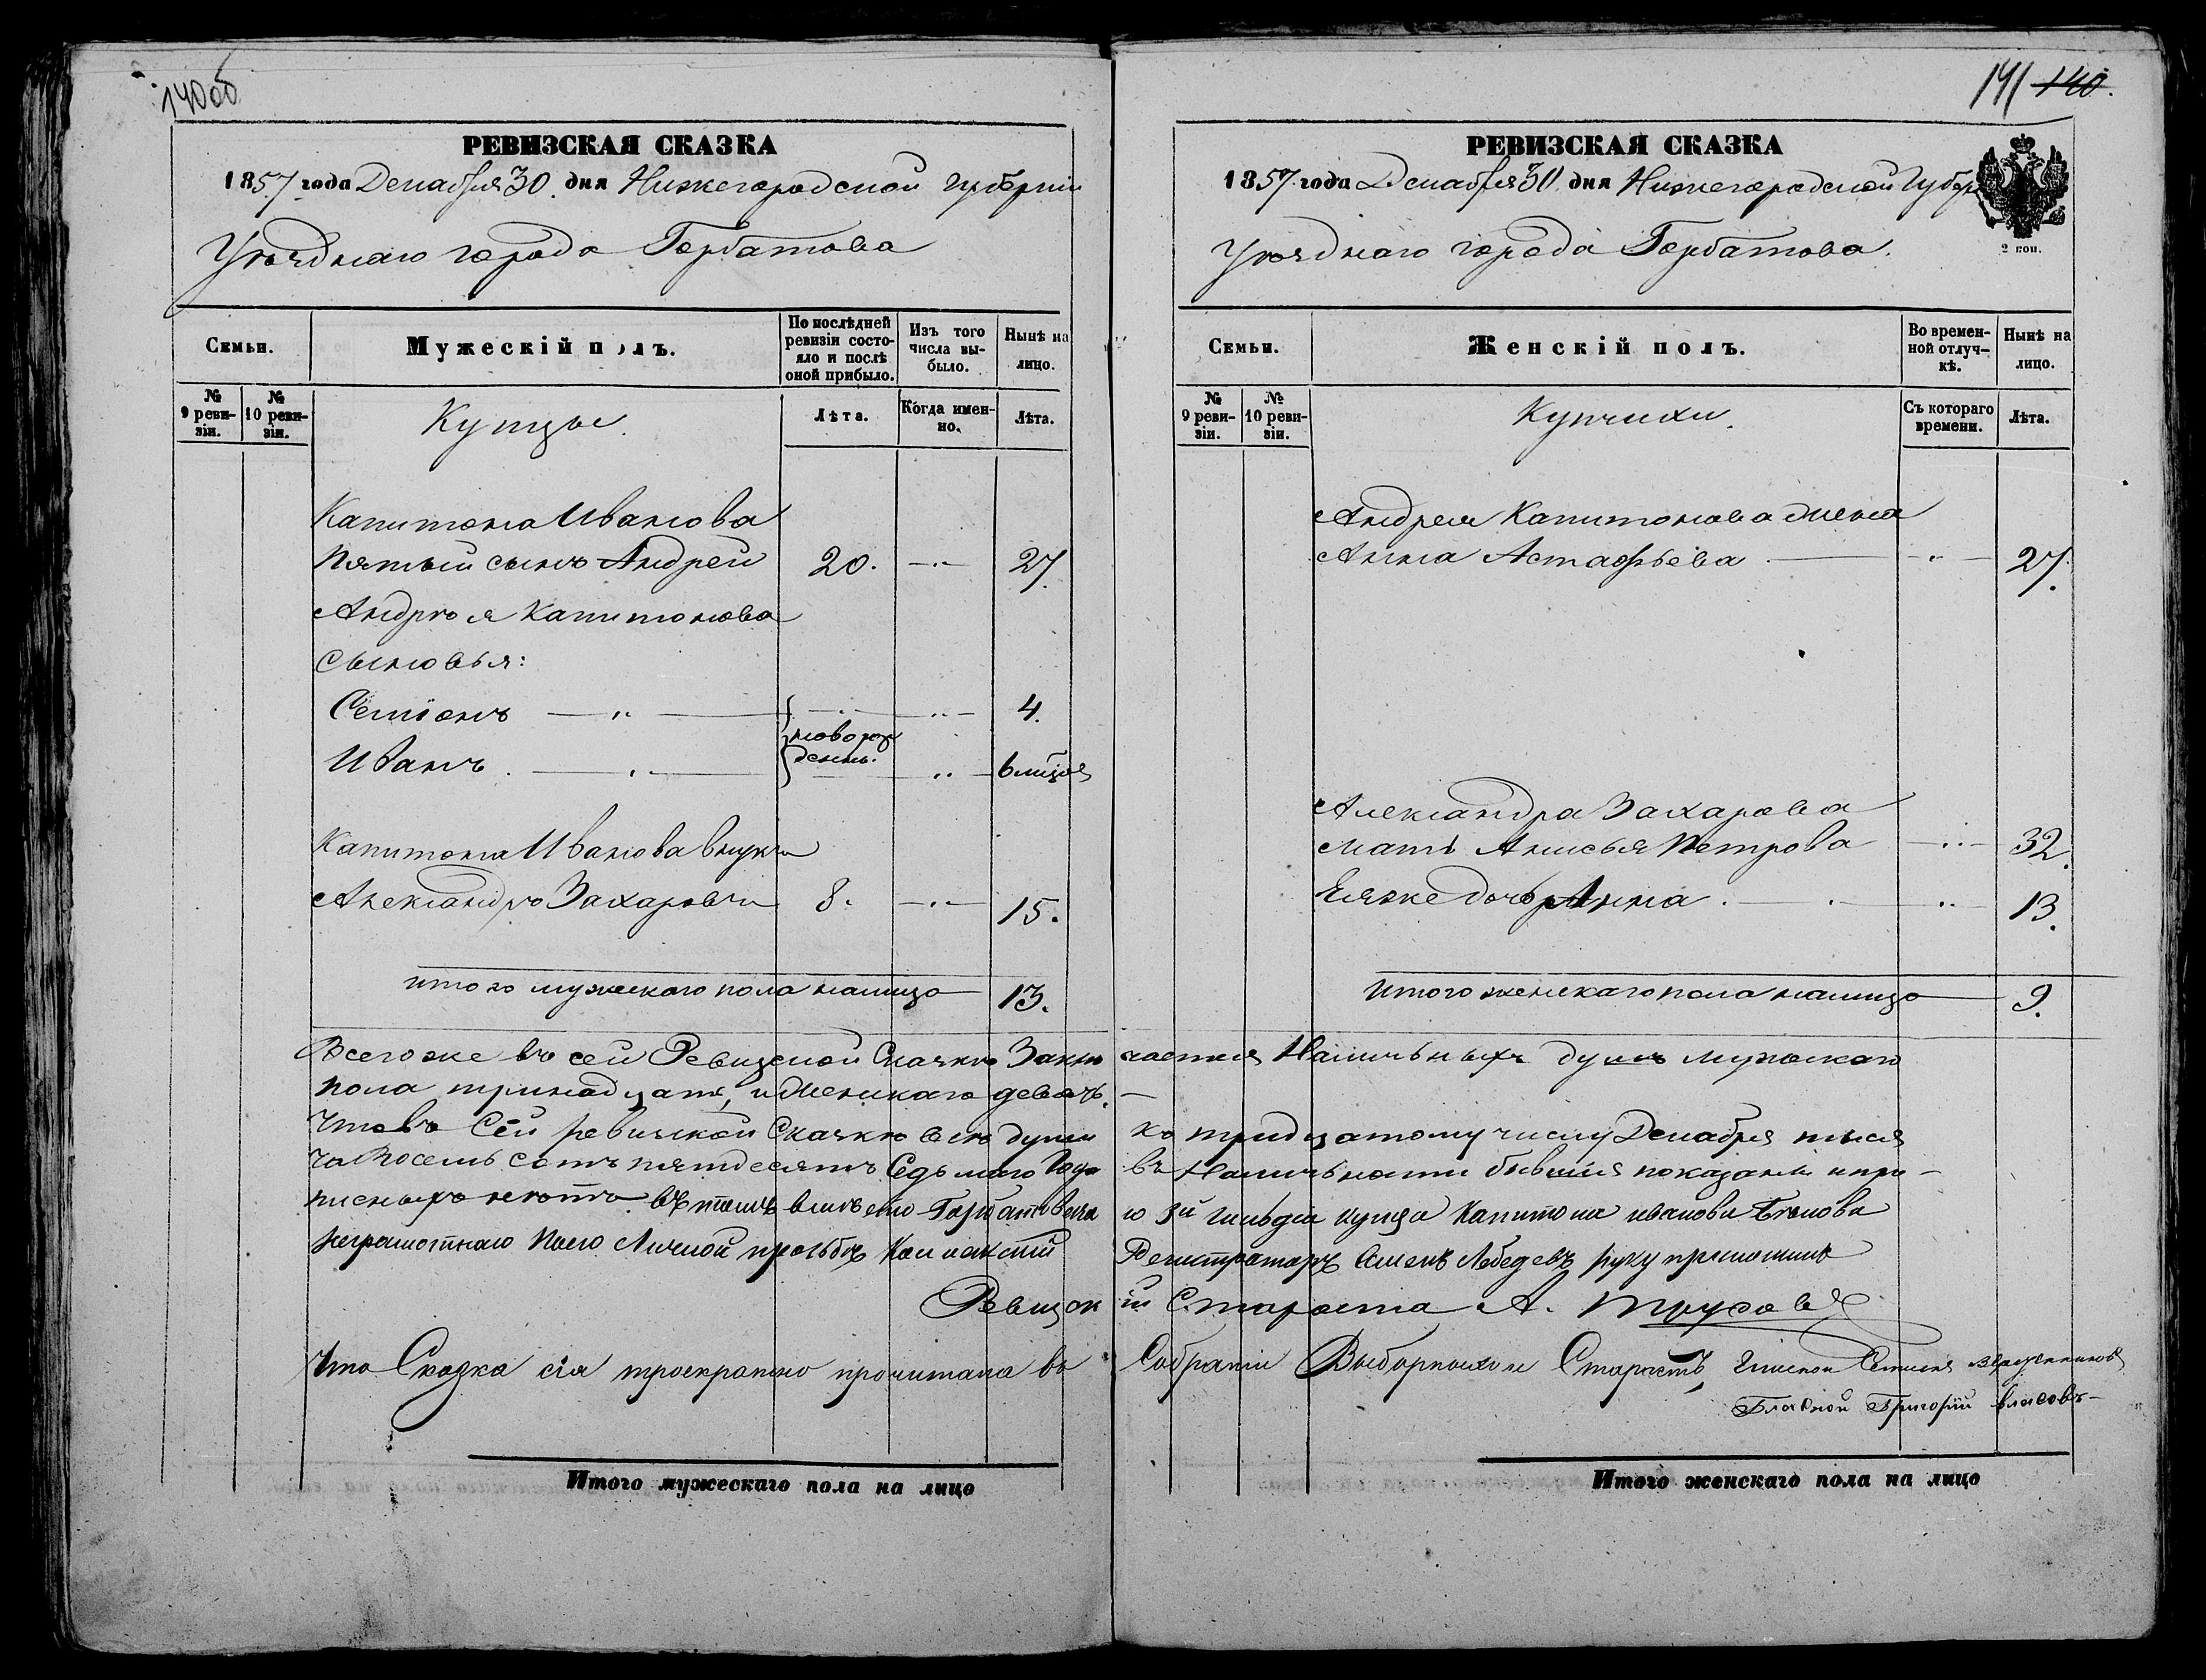 140об
РЕВИЗСКАЯ СКАЗКА
1857 года Декабря 30. дня Нижегородской губерніи
Уѣзднаго города Горбатова
Семьи.
Мужескій полъ.
По послѣдней ревизіи состояло и послѣ оной прибыло.
Изъ того числа выбыло.
Нынѣ на лицо.
№ 9 ревизіи.
№ 10 ревизіи.
Купцы.
Лѣта.
Когда именно.
Лѣта.
Капитона Иванова
Пятый сынъ Андрей 20. 27.
Андрѣя Капитонова
Сыновья:
Семіонъ 4.
новорож
денъ.
Иванъ. 6 мѣсяц
Капитона Иванова внукъ
Александръ Захаровъ 8. 15.
итого мужескаго пола налицо 13.
141 140.
РЕВИЗСКАЯ СКАЗКА
1857 года Декабря 30. дня Нижегородской Губер
Уѣзднаго города Горбатова.
2 коп.
Семьи.
Женскій полъ.
Во временной отлучкѣ.
Нынѣ на лицо.
№ 9 ревизіи.
№ 10 ревизіи.
Купчихи.
Съ котораго времени.
Лѣта.
Андрея Капитонова жена
Анна Астафьева 27.
Александра Захарова
мать Анисья Петрова 32.
Еяже дочь Анна. 13.
Итого женскаго пола налицо 9.
Всегоже въ сей Ревизской Сказкѣ Заклю чается Наличныхъ душъ мужскаго
пола тринадцать, и женскаго девять.
Что въ Сей ревизской Сказкѣ всѣ души къ тридцатому числу Декабря тыся
ча Восемь сотъ пятдесятъ Седьмаго Года въ Наличности бывшія показаны и про-
писныхъ нетъ. въ томъ вместо Горбатовска го 3й гильдіи купца Капитона иванова Белова
неграмотнаго По его Личной прозьбе Коллежскій Регистраторъ Лебедевъ руку приложилъ
Ревизскій Староста А. Трусовъ
Что Сказка сія троекратно прочитана въ Собраніи Выборныхъ и Старостъ,
Григорій власовъ-
Итого мужескаго пола на лицо
Итого женскаго пола на лицо